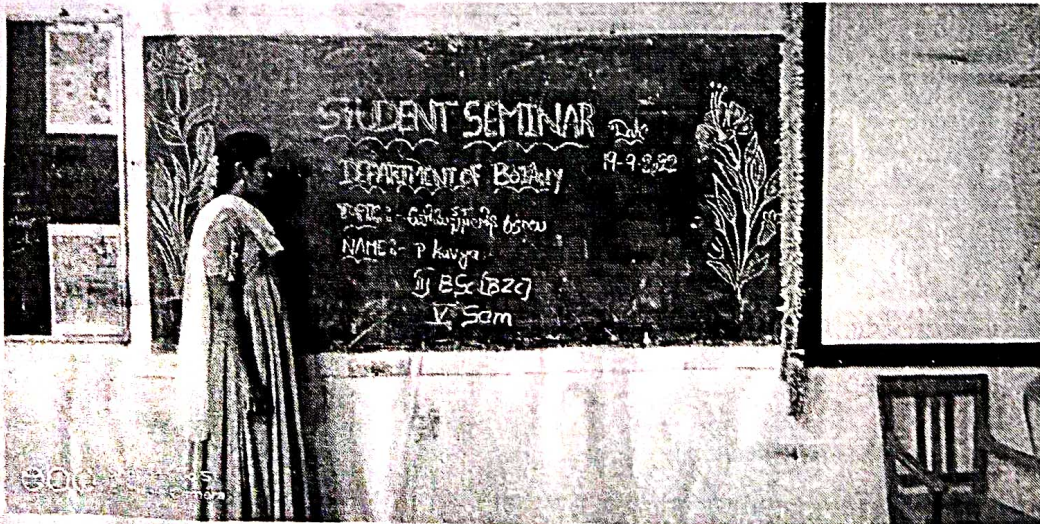 STUDENT SEMINAR
Date
19-9-2022
DEPARTMENT OF BOTANY
TOPIC :-
NAME :- P Kavya
III BSc [BZC]
V Sem